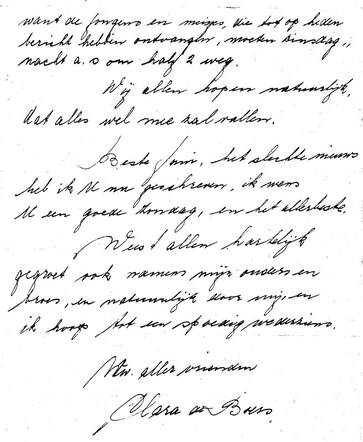 want de jongens en meisjes, die tot op heden
bericht hebben ontvangen, moeten dinsdag„
nacht a.s om half 2 weg.
Wij allen hopen natuurlijk,
dat alles wel mee zal vallen.
Beste Juin, het slechte nieuws
heb ik U nu geschreven, ik wens
U een goede Zondag, en het allerbeste.
Weest allen hartelijk
gegroet ook namens mijn ouders en
broes, en natuurlijk door mij, en
ik hoop tot een spoedig wederziens.
Uw. aller vriendin
Clara de Boers.